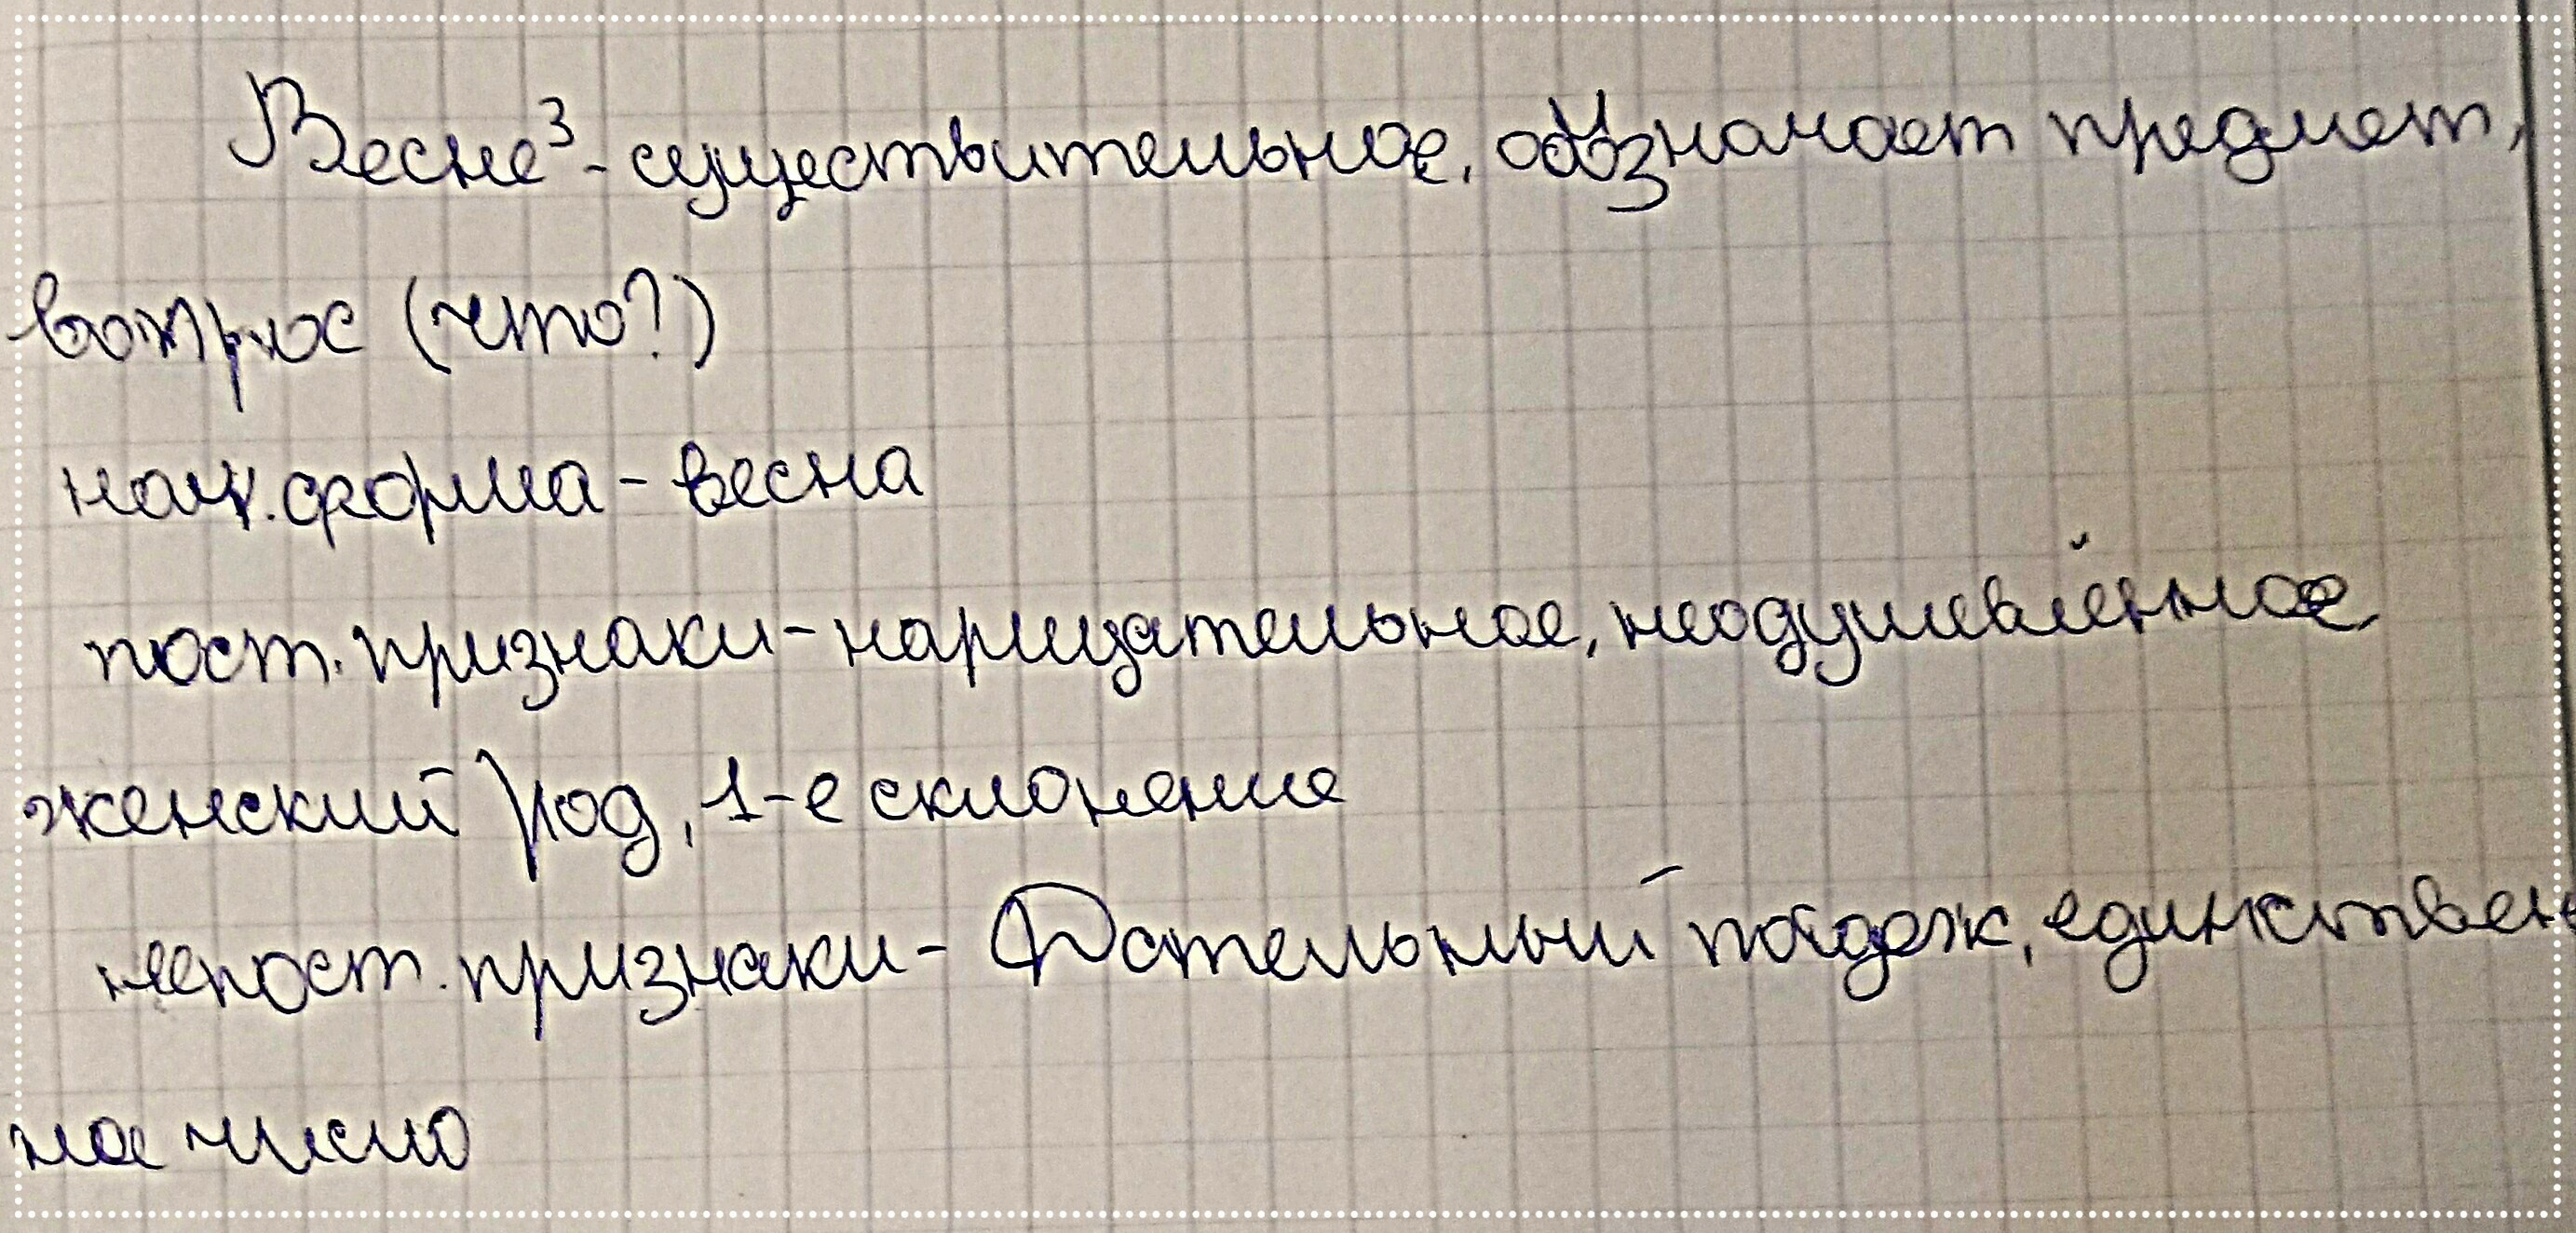 Весне³ - существительное, обозначает предмет,
вопрос (что?)
нач. форма - весна
пост. признаки - нарицательное, неодушевлённое,
женский род, 1-е склонение
непост. признаки - Дательный падеж, единствен
ное число